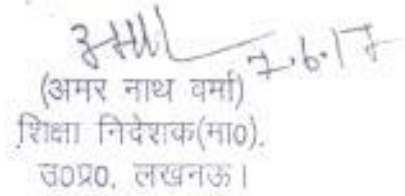 7.6.17
(अमर नाथ वर्मा)
शिक्षा निदेशक(मा0),
उ0प्र0, लखनऊ।